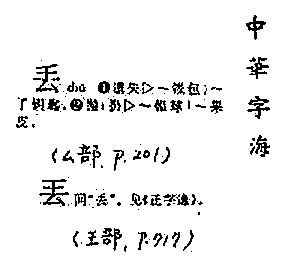 中華字海
丟 diū ❶遗失▷～钱包|～
了钥匙。❷抛;扔▷～铅球|～果
皮。
(厶部, p.201)
丟 同"丢"。见《正字通》。
(王部, p.717)